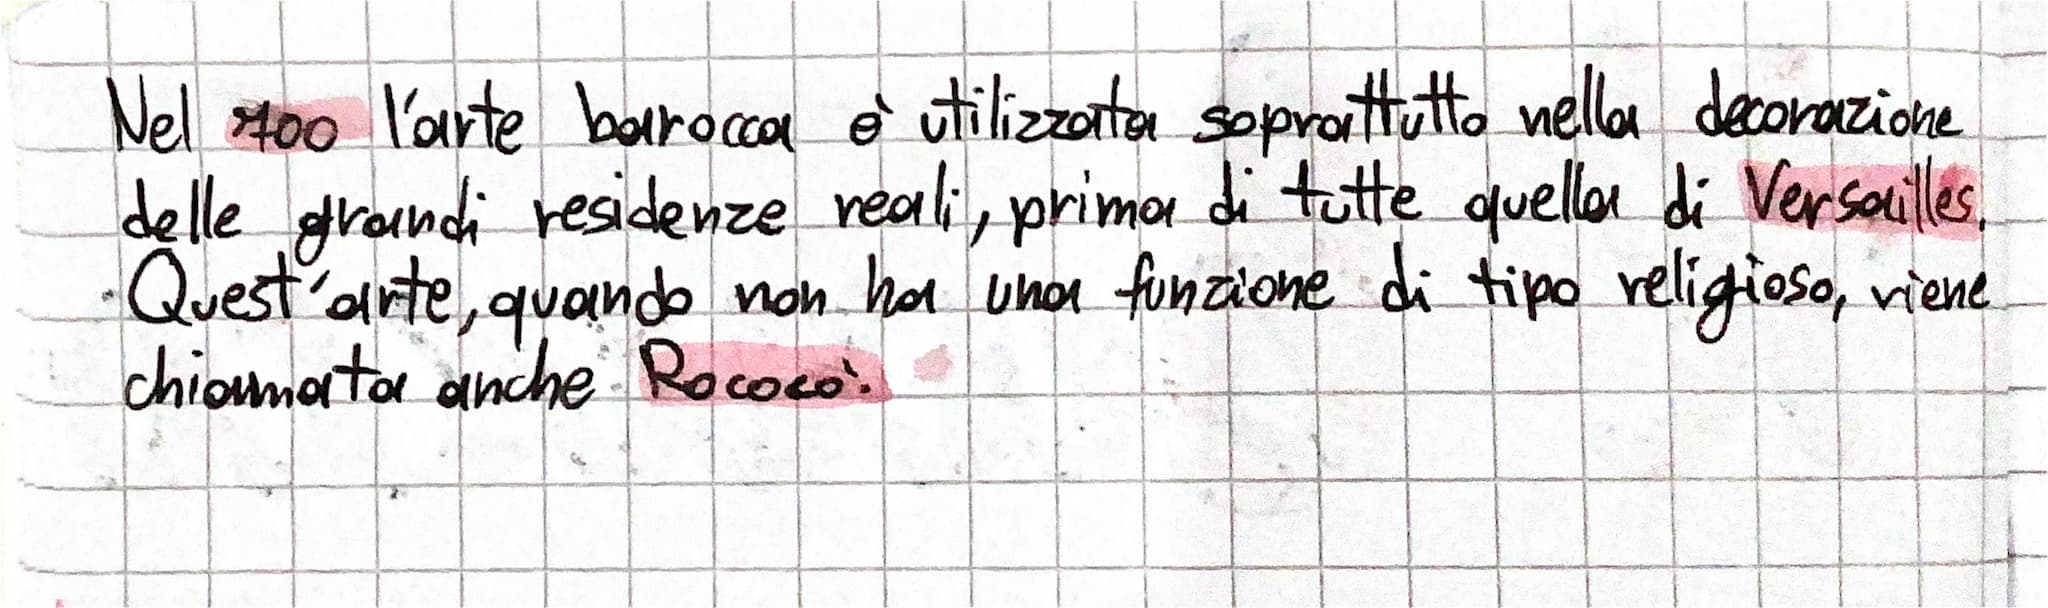 Nel 700 l'arte barocca è utilizzata soprattutto nella decorazione
delle grandi residenze reali, prima di tutte quella di Versailles.
Quest'arte, quando non ha una funzione di tipo religioso, viene
chiamata anche Rococò.